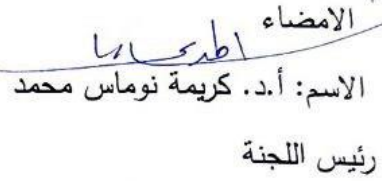 الامضاء
الاسم: أ.د. كريمة نوماس محمد
رئيس اللجنة